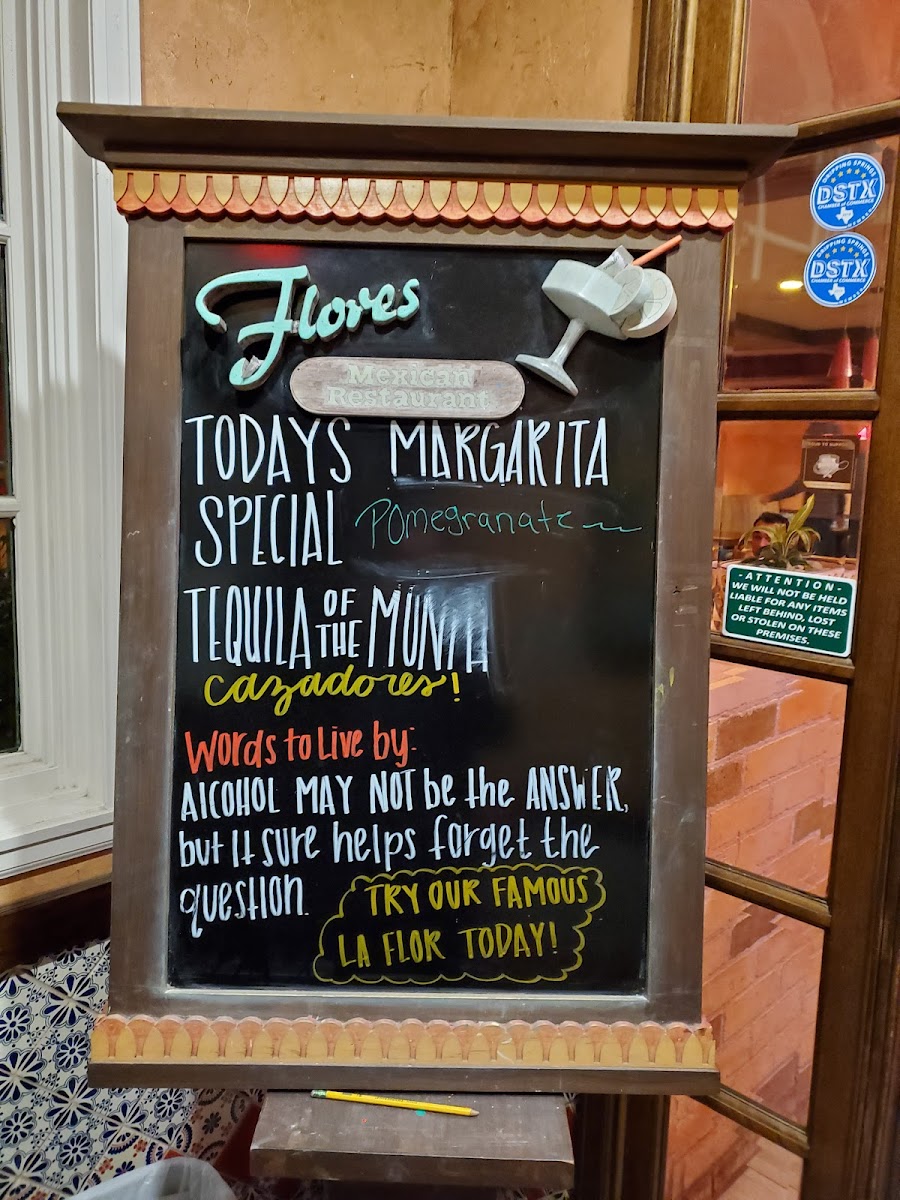 Flores
Mexican
Restaurant
TODAYS MARGARITA
SPECIAL Pomegranate
TEQUILA OF THE MONTH
cazadores!
Words to Live by:
ALCOHOL MAY NOT be the ANSWER,
but It sure helps forget the
question.
TRY OUR FAMOUS
LA FLOR TODAY!
DRIPPING SPRINGS
DSTX
CHAMBER of COMMERCE
MEMBER
DRIPPING SPRINGS
DSTX
CHAMBER of COMMERCE
MEMBER
- ATTENTION -
WE WILL NOT BE HELD
LIABLE FOR ANY ITEMS
LEFT BEHIND, LOST
OR STOLEN ON THESE
PREMISES.